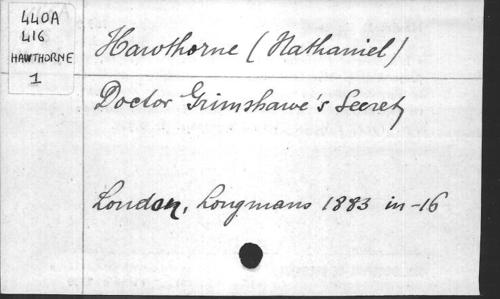 440A
416
HAWTHORNE
1
Hawthorne (Nathaniel)
Doctor Grimshawe's Secret
London, Longmans 1883 in-16